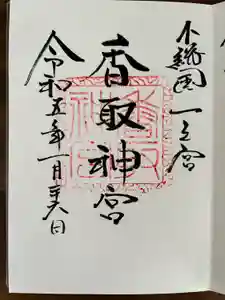 下総国一之宮
香取神宮
令和五年一月六日
香取
神宮